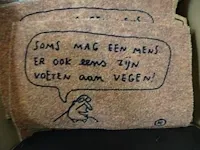 SOMS MAG EEN MENS
ER OOK eens ZIJN
VOETEN aan VEGEN!